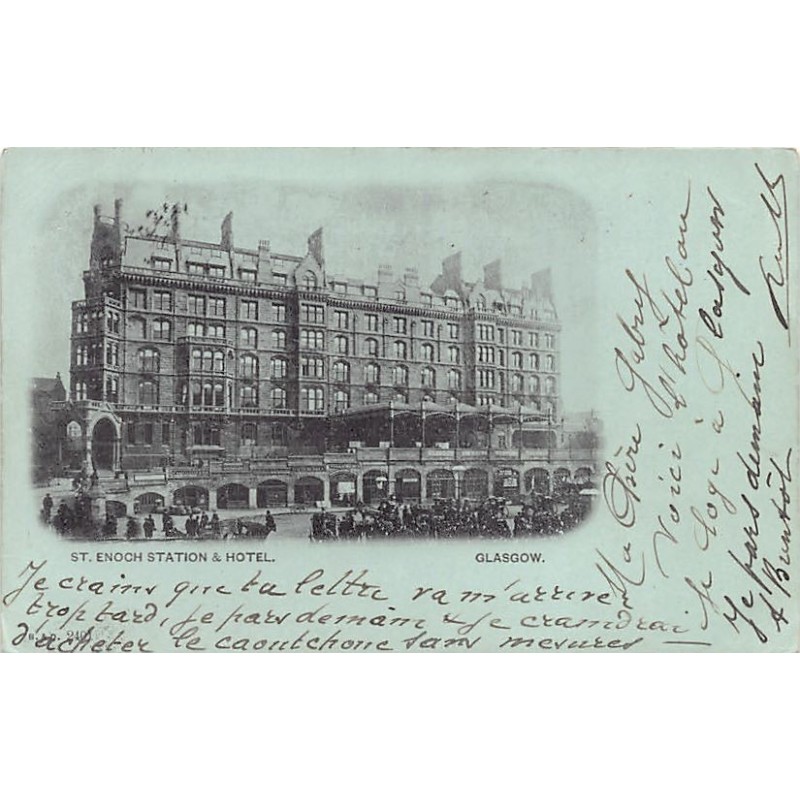 ST. ENOCH STATION & HOTEL.
GLASGOW.
Ma Chère Gabry
Voici l'hôtel ou
Je loge à Glasgow
Je pars demain
A
Je crains que ta lettre va m'arrive
trop tard, Je pars demain & Je craindrai
d'acheter le caoutchouc sans mesures